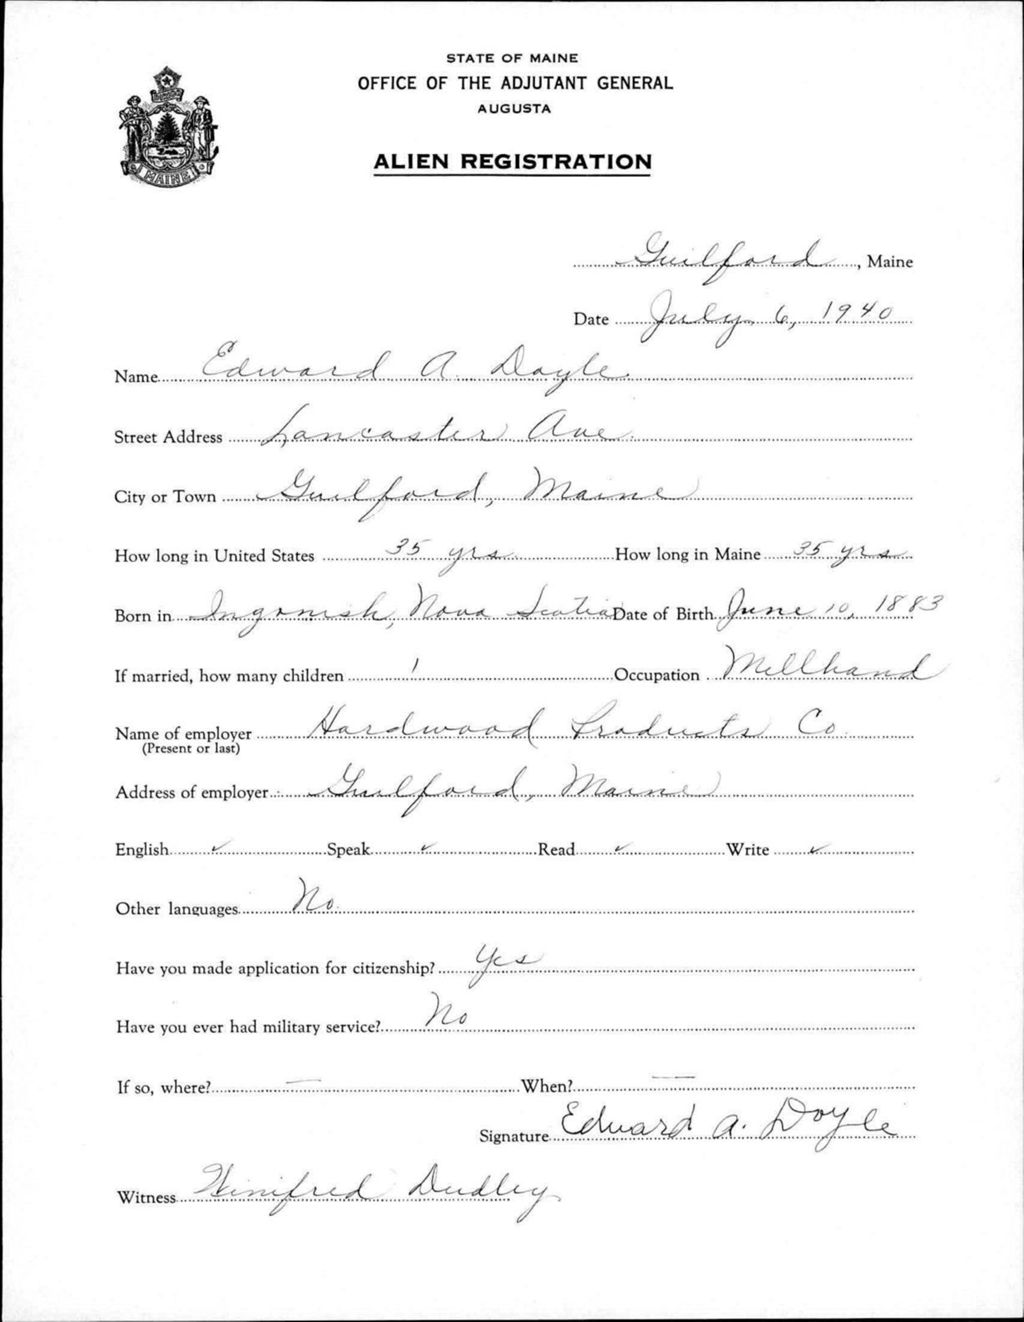 STATE OF MAINE
OFFICE OF THE ADJUTANT GENERAL
AUGUSTA
ALIEN REGISTRATION
MAINE
Guilford, Maine
Date July 6, 1940
Name Edward A. Doyle
Street Address Lancaster Ave.
City or Town Guilford, Maine
How long in United States 35 yrs How long in Maine 35 yrs
Born in Ingonish, Nova Scotia Date of Birth June 10, 1883
If married, how many children 1 Occupation Millhand
Name of employer Hardwood Products Co.
(Present or last)
Address of employer Guilford, Maine
English ✓ Speak ✓ Read ✓ Write ✓
Other languages No
Have you made application for citizenship? Yes
Have you ever had military service? No
If so, where? — When? —
Signature Edward A. Doyle
Witness Winifred Dudley